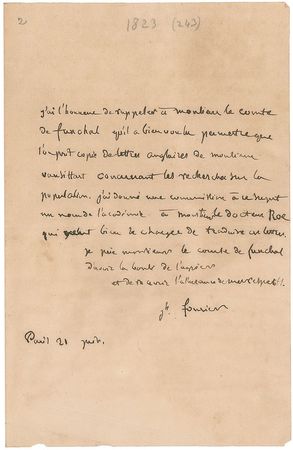 2
1823 (243)
j'ai l'honneur de rappeler à monsieur le comte
de funchal qu'il a bien voulu permettre que
l'on prit copie de lettres anglaises de monsieur
vansittart concernant les recherches sur la
population. j'ai donné une commission à ce sujet
au nom de l'académie à monsieur le docteur Roe
qui veut bien se charger de traduire ces lettres.
je prie monsieur le comte de funchal
d'avoir la bonté de l'agréer
et de recevoir l'assurance de mon respect.
jh. fourier
Paris 21 juin.